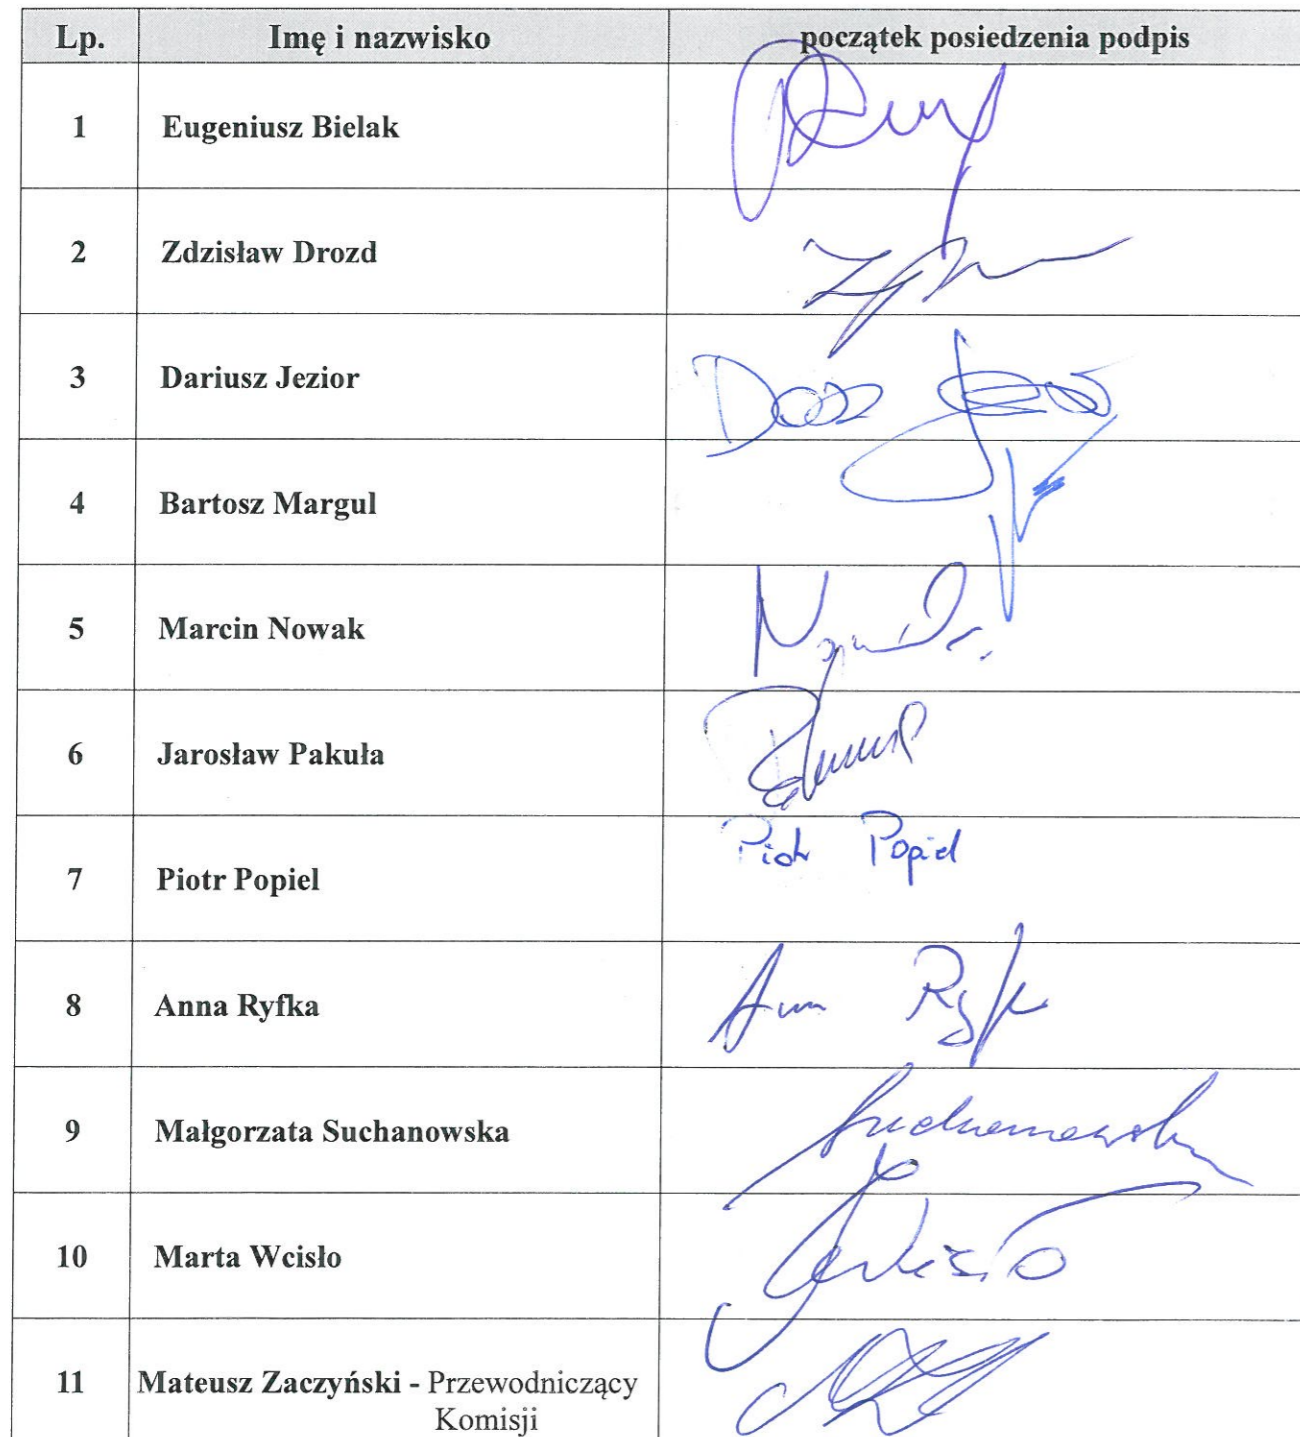 Lp. Imę i nazwisko początek posiedzenia podpis
1 Eugeniusz Bielak
2 Zdzisław Drozd
3 Dariusz Jezior
4 Bartosz Margul
5 Marcin Nowak
6 Jarosław Pakuła
7 Piotr Popiel Piotr Popiel
8 Anna Ryfka Anna Ryfka
9 Małgorzata Suchanowska Suchanowska
10 Marta Wcisło Wcisło
11 Mateusz Zaczyński - Przewodniczący
Komisji